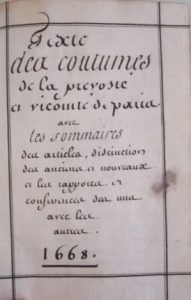 Texte
des coutumes
de la prevosté
et vicomté de paris
avec
les sommaires
des articles, distinction
des anciens et nouveaux
et les rapports et
conferences des uns
avec les
autres.
1668.